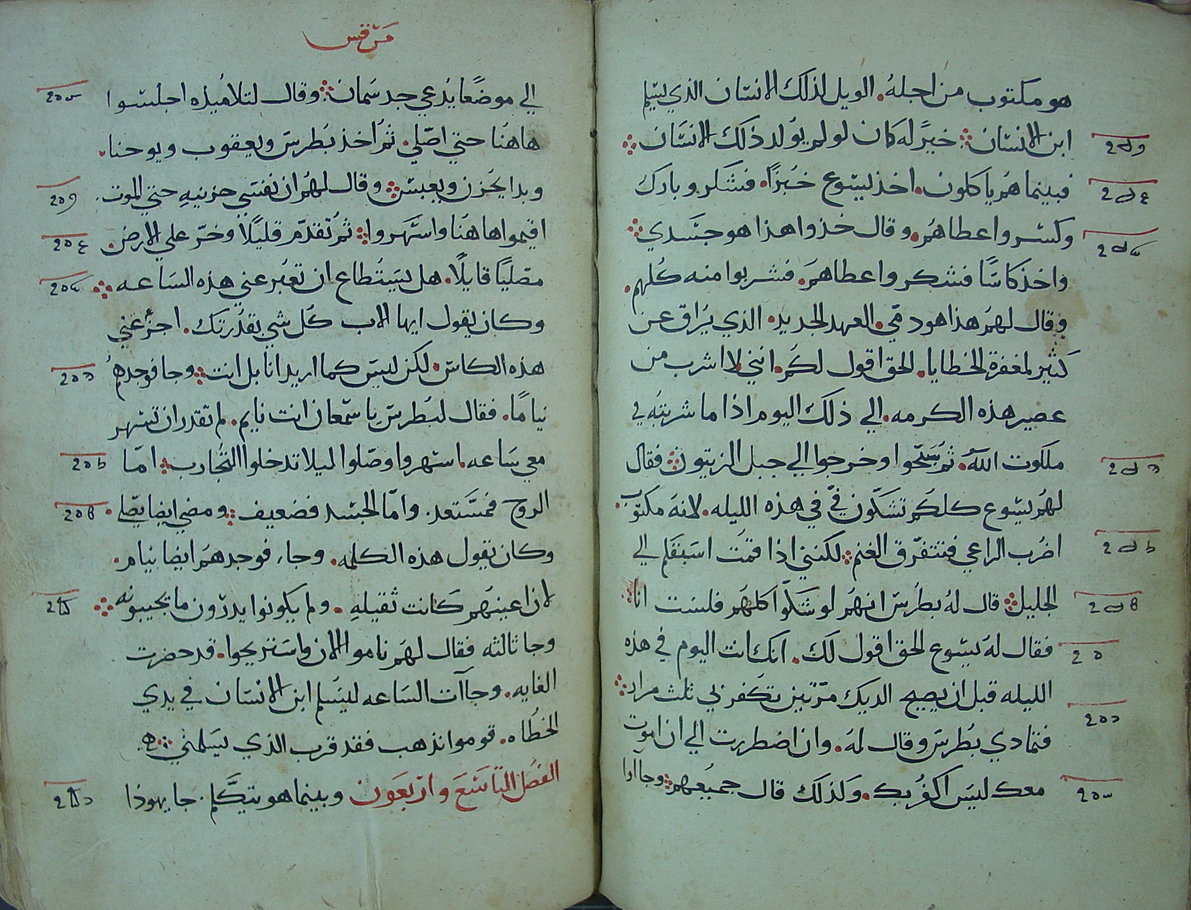 هو مكتوب من اجله. الويل لذلك الانسان الذي يسلم
ابن الانسان ܀ خيرًا له كان لو لم يولد ذلك الانسان ܀
فبينما هم ياكلون. اخذ يسوع خبزًا. فشكر وبارك
وكسر واعطاهم. وقال خذوا هذا هو جسدي ܀
واخذ كاسًا فشكر واعطاهم. فشربوا منه كلهم.
وقال لهم هذا هو دمي. العهد الجديد. الذي يراق عن
كثير لمغفرة الخطايا. الحق اقول لكم. انني لا اشرب من
عصير هذه الكرمه. الي ذلك اليوم اذا ما شربته في
ملكوت الله. ثم سبحوا وخرجوا الي جبل الزيتون ܀ فقال
لهم يسوع كلكم تشكون فيّ في هذه الليله. لانه مكتوب.
اضرب الراعي فتتفرق الغنم ܀ لكنني اذا قمت اسبقكم الي
الجليل ܀ قال له بطرس انهم لو شكوا كلهم فلست انا
فقال له يسوع الحق اقول لك. انك انت اليوم في هذه
الليله قبل ان يصيح الديك مرتين تكفر بي ثلث مرار ܀
فتمادي بطرس وقال له. وان اضطررت الي ان اموت
معك ليس اكفر بك. وكذلك قال جميعهم ܀ وجااوا
مرقس
الي موضعًا يدعي جدسمان ܀ وقال لتلاميذه اجلسوا
هاهنا حتي اصلي. ثم اخذ بطرس ويعقوب ويوحنا.
وبدا يحزن ويعبس ܀ وقال لهم ان نفسي حزينه حتي الموت.
اقيموا هاهنا واسهروا ܀ ثم تقدم قليلًا وخر علي الارض
مصليًا قايلًا. هل يستطاع ان تعبر عني هذه الساعه ܀
وكان يقول ايها الاب كل شي بقدرتك. اجز عني
هذه الكاس. لكن ليس كما اريد انا بل انت ܀ وجا فوجدهم
نيامًا. فقال لبطرس يا سمعان انت نايم. لم تقدر ان تسهر
معي ساعه. اسهروا وصلوا ليلا تدخلوا التجارب ܀ امّا
الروح فمستعد. وامّا الجسد فضعيف ܀ ومضي ايضا يصلي.
وكان يقول هذه الكلمه. وجاء فوجدهم ايضا نيام.
لان اعينهم كانت ثقيله. ولم يكونوا يدرون ما يجيبونه ܀
وجا ثالثه فقال لهم ناموا الان واستريحوا. قد حضرت
الغايه. وجاآت الساعه ليسلم ابن الانسان في يدي
الخطاه. قوموا نذهب فقد قرب الذي يسلمني ܀
الفصل التاسع واربعون وبينما هو يتكلم. جا يهوذا